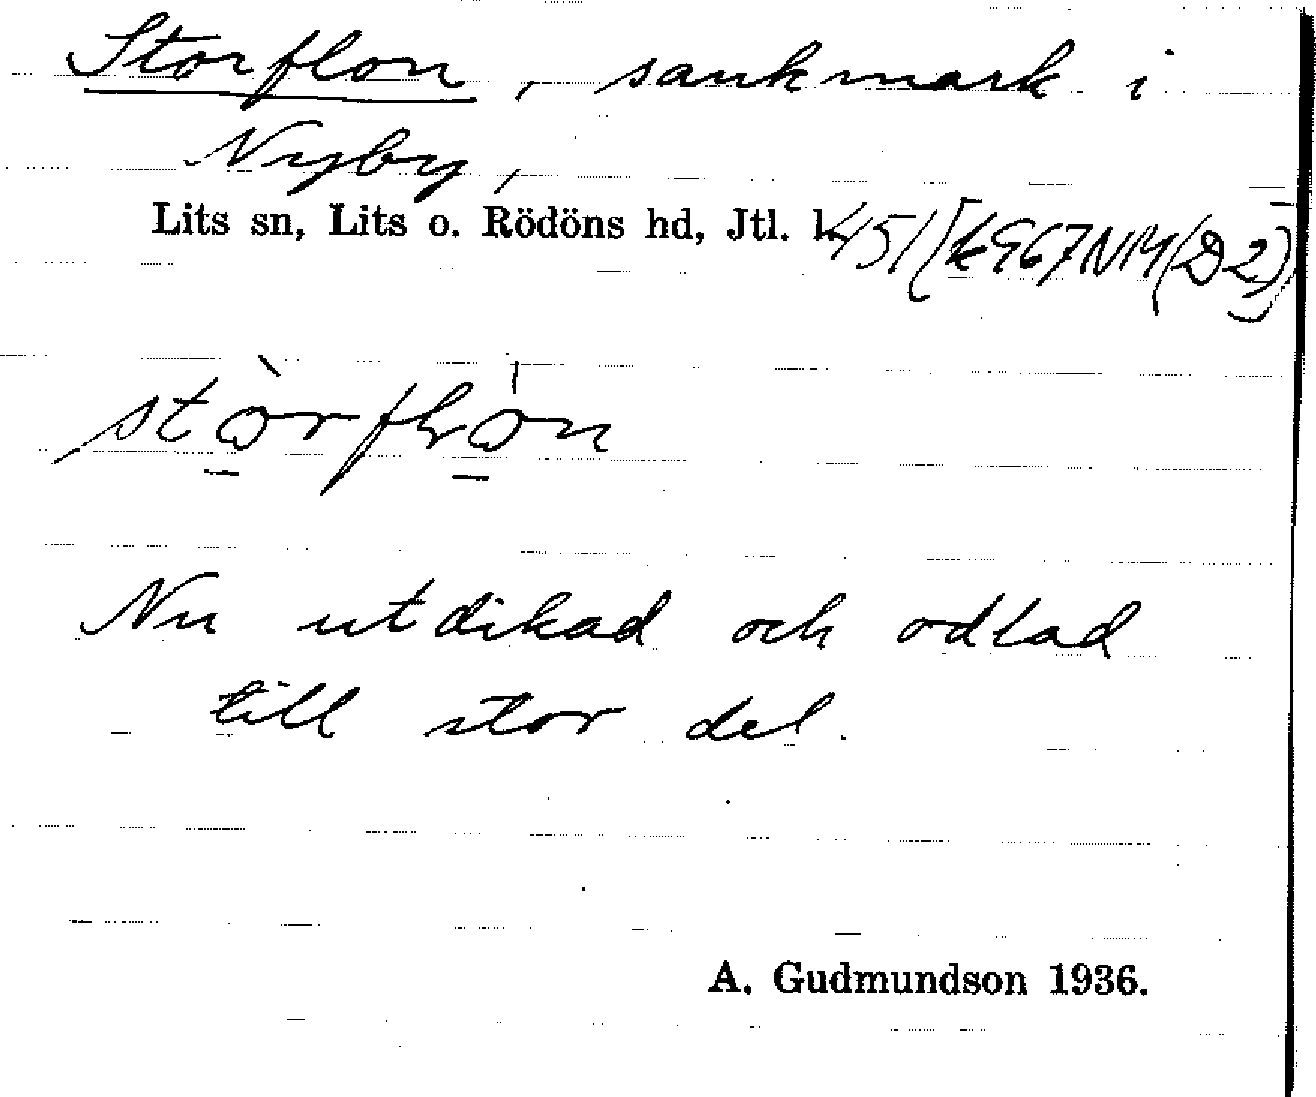 Storflon, sankmark i
Nyby,
Lits sn, Lits o. Rödöns hd, Jtl. l.
Nu utdikad och odlad
till stor del.
A. Gudmundson 1936.